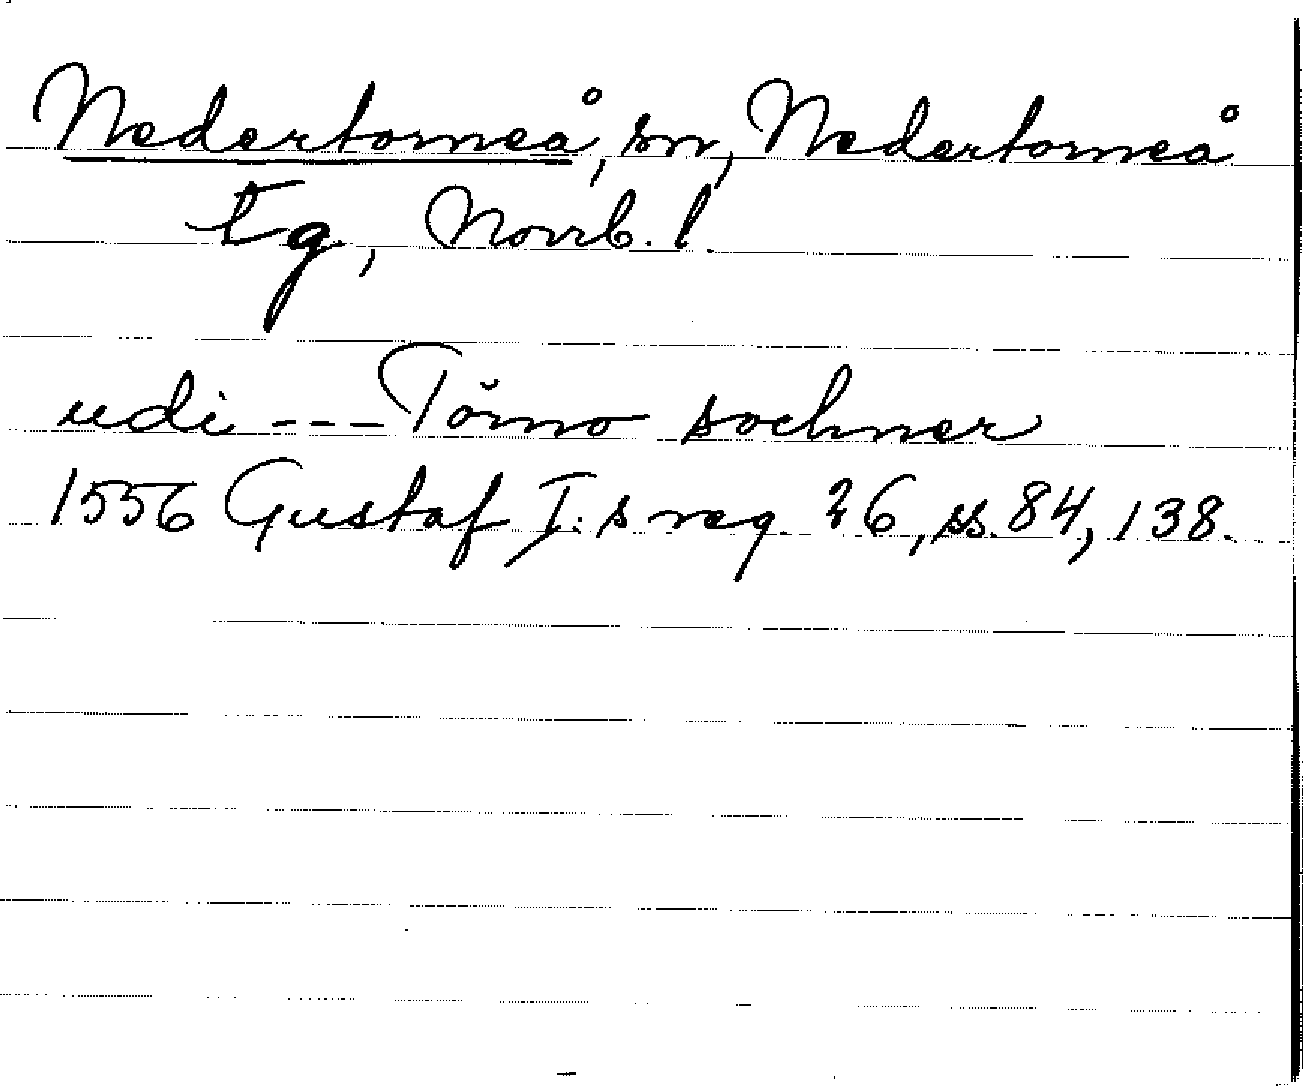 Nedertorneå, sn, Nedertorneå
tg, Norrb. l.
udi --- Törno sochner
1556 Gustaf I:s reg. 26, ss. 84, 138.